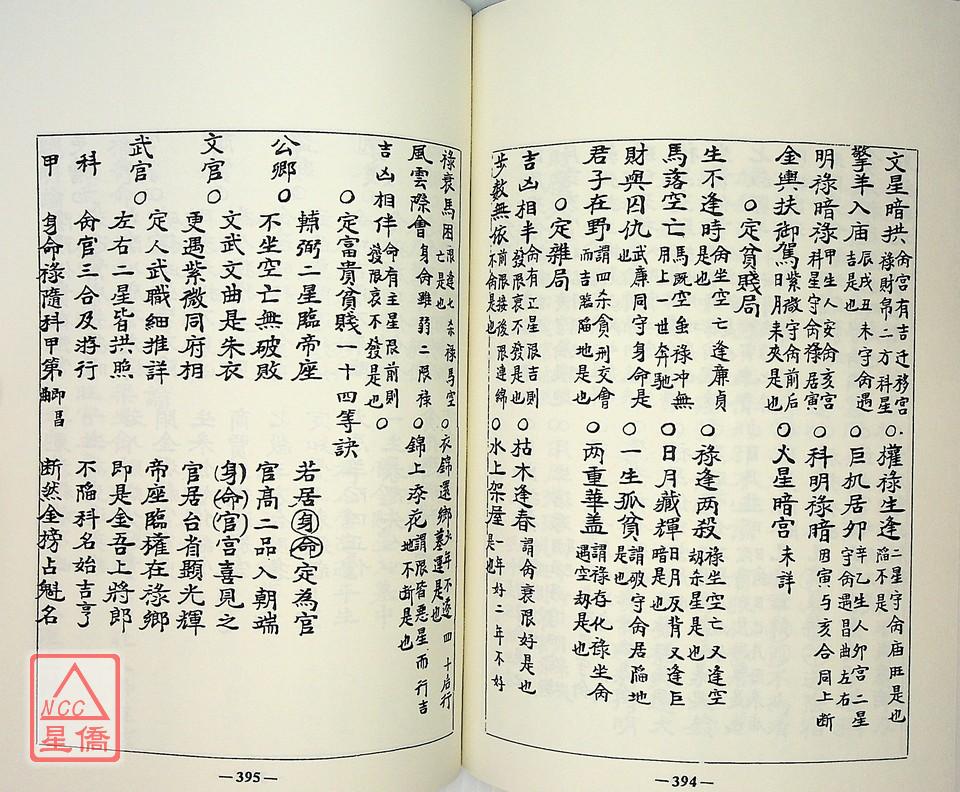 文星暗拱 命宮有吉迁移宮禄財帛二方科星 ○權禄生逢 二星守命庙旺是也陷不是
擎羊入庙 辰戌丑未守命遇吉是也 ○巨机居卯 辛乙生人卯宮二星守命遇昌曲左右
明禄暗禄 甲生人安命亥宮科星守命禄居寅 ○科明禄暗 因寅与亥合同上断
金輿扶御駕 紫微守命前后日月來夾是也 ○火星暗宮 未詳
○定貧賤局
生不逢時 命坐空亡逢廉貞是也 ○禄逢两殺 禄坐空亡又逢空劫杀星是也
馬落空亡 馬既空虽禄冲無用上一世奔馳 ○日月藏輝 日月反背又逢巨暗是也
財與囚仇 武廉同守身命是也 ○一生孤貧 謂破守命居陷地是也
君子在野 謂四杀貪刑交會而吉臨陷地是也 ○两重華盖 謂禄存化禄坐命遇空劫是也
○定雜局
吉凶相半 命有正星限吉則發限衰不發是也 ○枯木逢春 謂命衰限好是也
步數無依 前限接後限連綿不命是也 ○水上架屋 一年好二年不好是也
—394—
禄衰馬困 限逢七杀禄馬空亡是也 ○衣錦還鄉 少年不遂四十后行墓運是也
風雲際會 身命雖弱二限禄 ○錦上添花 謂限皆惡星而行吉地不断是也
吉凶相伴 命有主星限前則發限衰不發是也 ○
○定富貴貧賤一十四等訣
公卿○ 輔弼二星臨帝座 若居身命定為官
不坐空亡無破敗 官高二品入朝端
文官○ 文武文曲是朱衣 (身)(命)(官)宮喜見之
更遇紫微同府相 官居台省顯光輝
武官○ 定人武職細推詳 帝座臨權在禄鄉
左右二星皆拱照 即是金吾上將郎
科 命官三合及将行 不陷科名始吉亨
甲 身命禄隨科甲第 昌 断然金榜占魁名
—395—
NCC
星僑